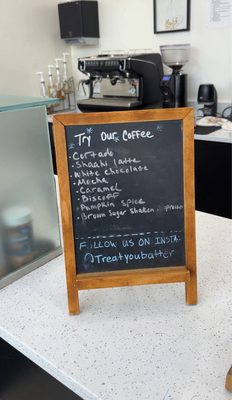 Try Our Coffee
• Cortado
• Shaahi latte
• White chocolate
• Mocha
• Caramel
• Biscoff
• Pumpkin Spice
• Brown Sugar Shaken Espresso
Follow us on INSTA:
@Treatyoubatter